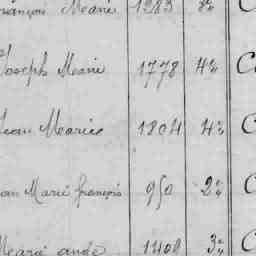 François Marie 1283 2e C
Joseph Marie 1778 4e C
Jean Marie 1204 4e C
Jean Marie françois 950 2e C
Marie ande 1400 3e C